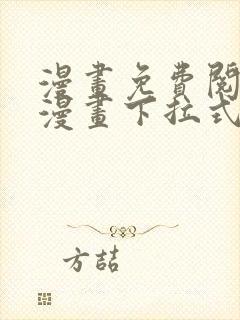 漫畫免費閱
漫畫下拉式
方喆